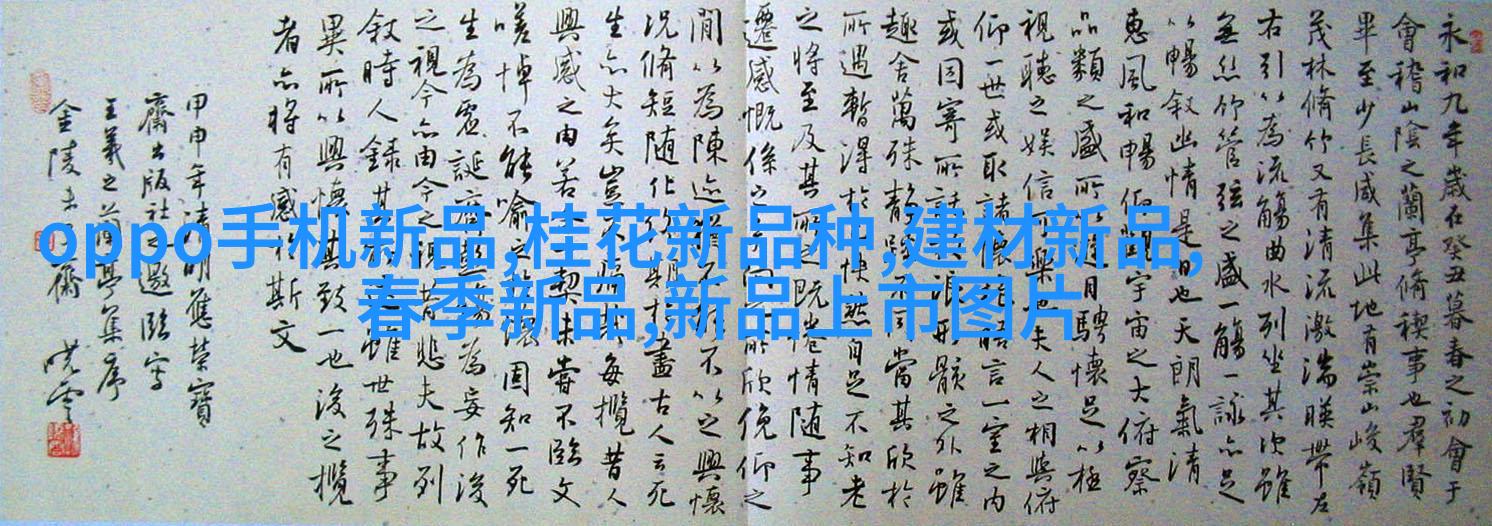 永和九年歲在癸丑暮春之初會于
會稽山陰之蘭亭脩稧事也群賢
畢至少長咸集此地有崇山峻嶺
茂林脩竹又有清流激湍暎帶左
右引以為流觴曲水列坐其次雖
無絲竹管弦之盛一觴一詠亦足
以暢敘幽情是日也天朗氣清
惠風和暢仰觀宇宙之大俯察
品類之盛所以遊目騁懷足以極
視聽之娛信可樂也夫人之相與俯
仰一世或取諸懷抱悟言一室之內
或因寄所託放浪形骸之外雖
趣舍萬殊靜躁不同當其欣於
所遇暫得於己快然自足不知老
之將至及其所之既惓情隨事
遷感慨係之矣向之所欣俛仰之
間以為陳迹猶不能不以之興懷
況脩短隨化終期於盡古人云死
生亦大矣豈不痛哉每攬昔人
興感之由若合一契未嘗不臨文
嗟悼不能喻之於懷固知一死
生為虛誕齊彭殤為妄作後
之視今亦由今之視昔悲夫故列
敘時人錄其所述雖世殊事
異所以興懷其致一也後之攬
者亦將有感於斯文
甲申年清明應榮寶
齋出版社之邀臨寫
王羲之蘭亭集序
金陵
oppo手机新品,桂花新品种,建材新品,
春季新品,新品上市图片